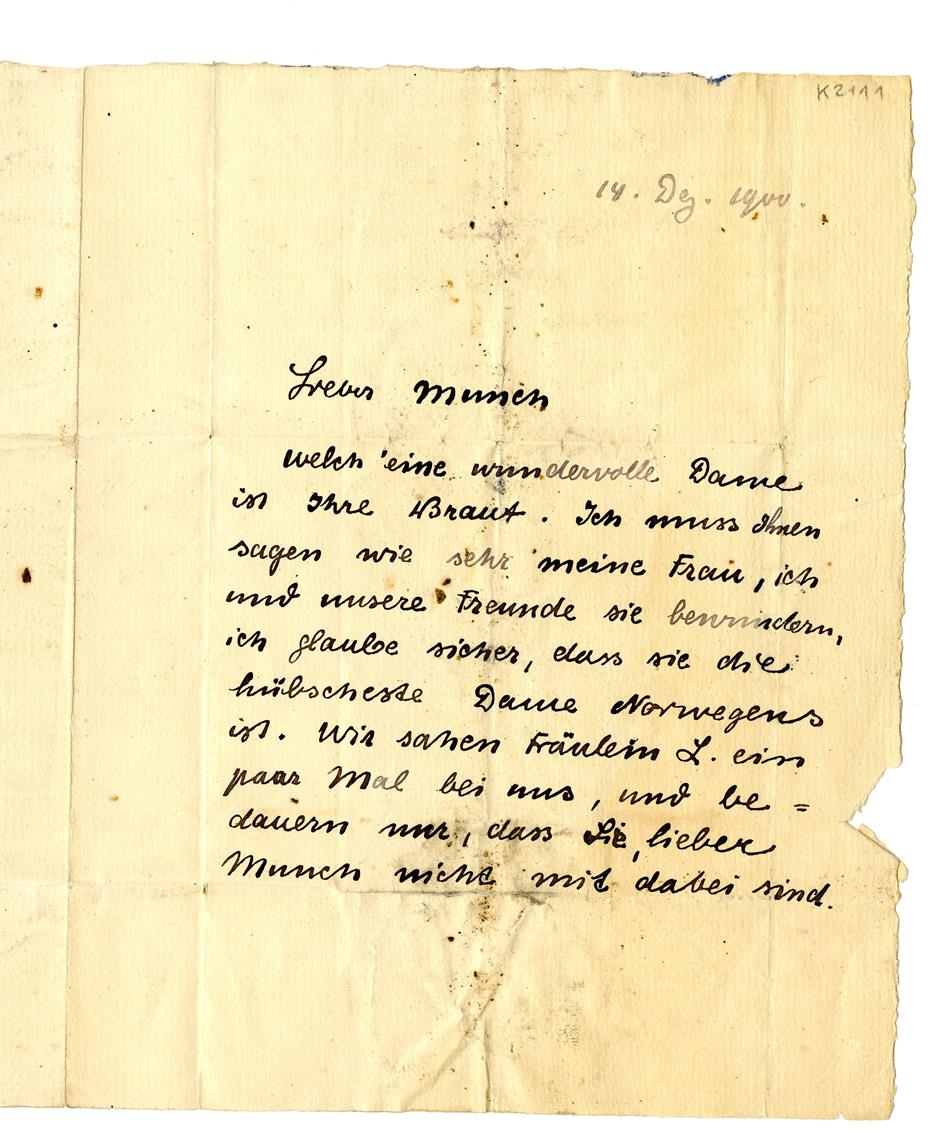 K2111
14. Dez. 1900.
Lieber Munch
welch eine wundervolle Dame
ist Ihre Braut. Ich muss Ihnen
sagen wie sehr meine Frau, ich
und unsere Freunde sie bewundern,
ich glaube sicher, dass sie die
hübscheste Dame Norwegens
ist. Wir sahen Fräulein L. ein
paar Mal bei uns, und be=
dauern nur, dass Sie, lieber
Munch nicht mit dabei sind.